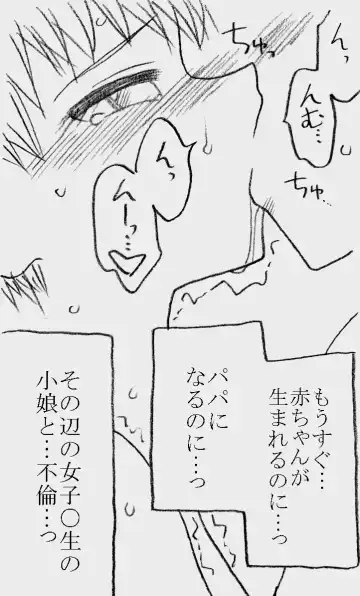 んっ
んむ…
ちゅっ
ちゅ
んっ
んーっ…♡
もうすぐ…
赤ちゃんが
生まれるのに…っ
パパに
なるのに…っ
その辺の女子〇生の
小娘と…不倫…っ